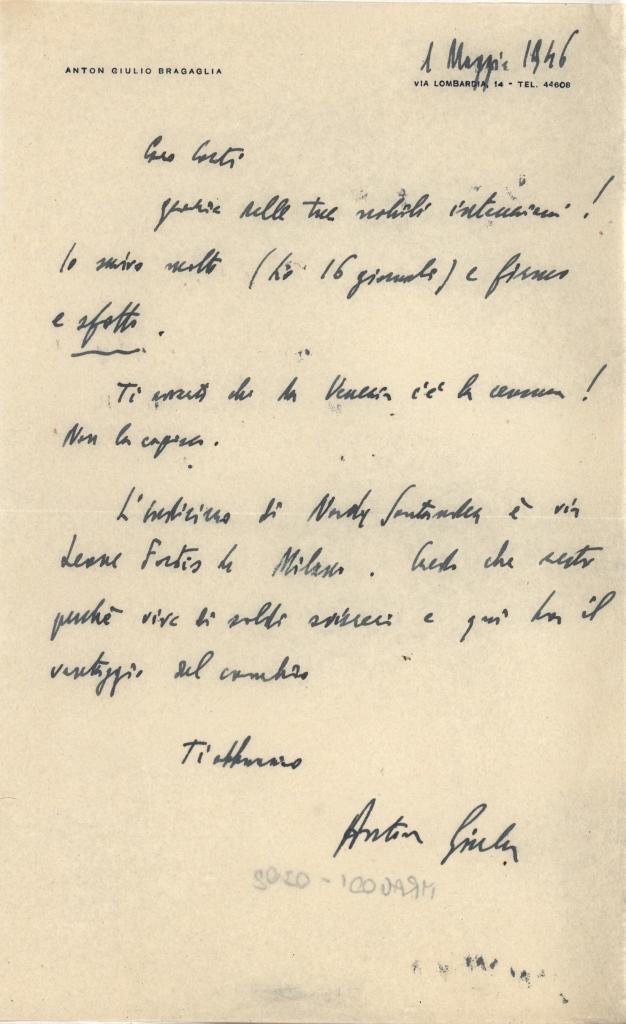 ANTON GIULIO BRAGAGLIA
1 Maggio 1946
VIA LOMBARDIA, 14 - TEL. 44608
Caro Conti
grazie delle tue nobili intenzioni!
Io scrivo molto (ho 16 giornali) e firmo
e sfotto.
Ti avverti che da Venezia c'è la censura!
Non la capisco.
L'indirizzo di è via
Leone Fortis Milano. Credo che resti
perché vive di soldi svizzeri e qui ha il
vantaggio del cambio
Ti abbraccio
Anton Giulio